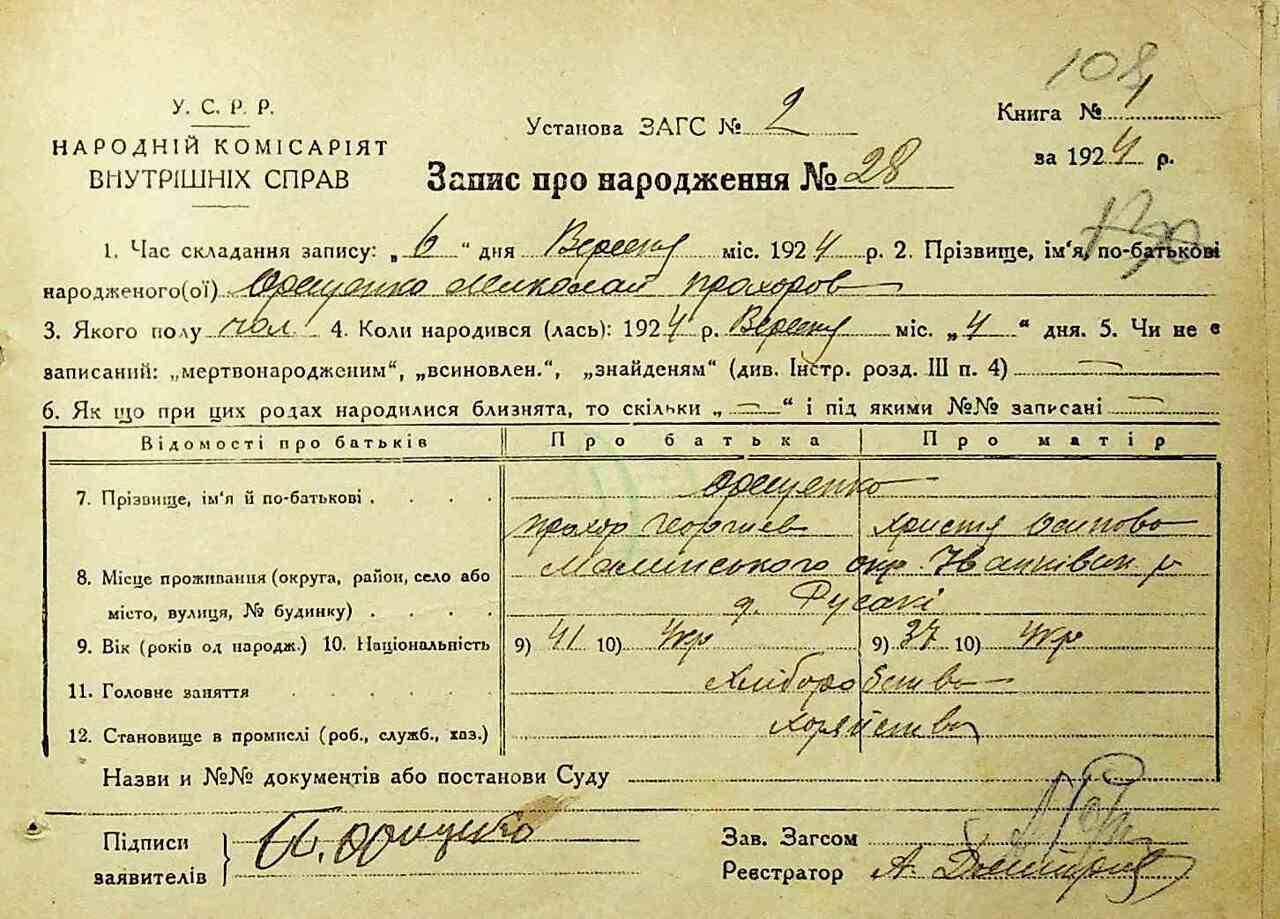 108
У. С. Р. Р.
НАРОДНІЙ КОМІСАРІЯТ
ВНУТРІШНІХ СПРАВ
Установа ЗАГС № 2
Книга №
за 1924 р.
Запис про народження № 28
1. Час складання запису: „ 6 “ дня Вересня міс. 1924 р. 2. Прізвище, ім'я, по-батькові
народженого(ої) Орещенко Миколай Прохоров
3. Якого полу чол. 4. Коли народився (лась): 1924 р. Вересня міс. „4 “ дня. 5. Чи не є
записаний: „мертвонародженим“, „всиновлен.“, „знайденям“ (див. Інстр. розд. III п. 4)
6. Як що при цих родах народилися близнята, то скільки „ — “ і під якими №№ записані —
Відомості про батьків Про батька Про матір
7. Прізвище, ім'я й по-батькові . . . . Орещенко
Прохор Георгиев Христя Осипова
8. Місце проживання (округа, район, село або Малинського окр. Іванківск. р
місто, вулиця, № будинку) . . . . д. Русакі
9. Вік (років од народж.) 10. Національність 9) 41 10) Укр 9) 37 10) Укр
11. Головне заняття . . . . . Хліборобство
12. Становище в промислі (роб., служб., хаз.) хозяйства
Назви и №№ документів або постанови Суду
Підписи
заявителів
П. Орещенко
Зав. Загсом
Реєстратор А. Дмитрів